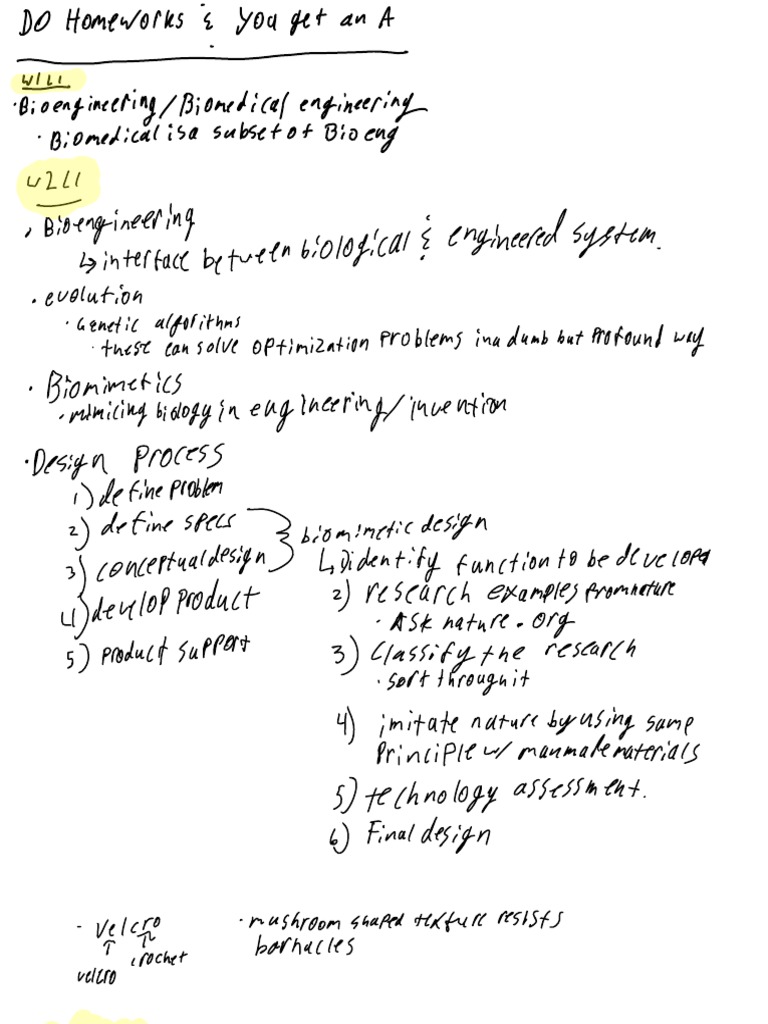 DO Homeworks & you get an A
W1L1
· Bioengineering/Biomedical engineering
· Biomedical is a subset of Bioeng
W2L1
· Bioengineering
↳ interface between biological & engineered system.
· evolution
· Genetic algorithms
· these can solve optimization problems in a dumb but profound way
· Biomimetics
· mimicing biology in engineering/invention
· Design Process
1) define problem
2) define specs
3) conceptual design
4) develop product
5) product support
biomimetic design
↳ 1) identify function to be developed
2) research examples from nature
· Ask nature.org
3) Classify the research
· sort through it
4) imitate nature by using same
principle w/ manmade materials
5) technology assessment.
6) Final design
· velcro
↑ ↑
velcro crochet
· mushroom shaped texture resists
barnacles